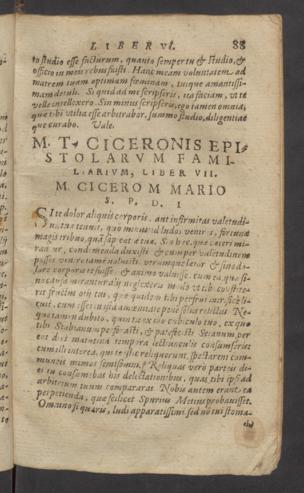 LIBER VI. 88
to studio esse facturum, quanto semper tu & studio, &
officio in meis rebus fuisti. Hanc meam voluntatem ad
matrem tuam optimam fœminam, tuique amantissi-
mam detuli. Si quid ad me scripseris, ita faciam, vt te
velle intellexero. Sin minus scripseris, ego tamen omnia,
quæ tibi vtilia esse arbitrabor, summo studio, diligentiaq́;
que curabo. Vale.
M. T. CICERONIS EPI-
STOLARVM FAMI-
LIARIVM, LIBER VII.
M. CICERO M MARIO
S. P. D. I
SI te dolor aliquis corporis, aut infirmitas valetudi-
nis tuæ tenuit, quo minus ad ludos venires, fortunæ
magis tribuo, quàm sapientiæ tuæ. Sin hæc, quæ cæteri mi-
rantur, contemnenda duxisti & cum per valetudinem
posses venire tamen noluisti
lare corporis fuisse, & animo valuisse, cum ea, quæ si-
ne causa mirantur alij neglexeris modo vt tibi constite-
rit fructus otij tui, quo quidem tibi perfrui mirificè li-
cuit, cum esses in ista amœnitate penè solus relictus Ne-
que tamen dubito, quin tu ex illo cubiculo tuo, ex quo
tibi Stabianum
eos dies matutina tempora lectiunculis consumseris
cum illi interea, qui te istic reliquerunt, spectarent com-
muneis mimos semisomni. Reliquas verò partes di-
ei tu consumebas his delectationibus, quas tibi ipse ad
arbitrium tuum compararas Nobis autem erant ea
perpetienda, quæ scilicet Spurius Metius probauisset.
Omnino si quæris, ludi apparatissimi, sed nō tui stoma-
chi